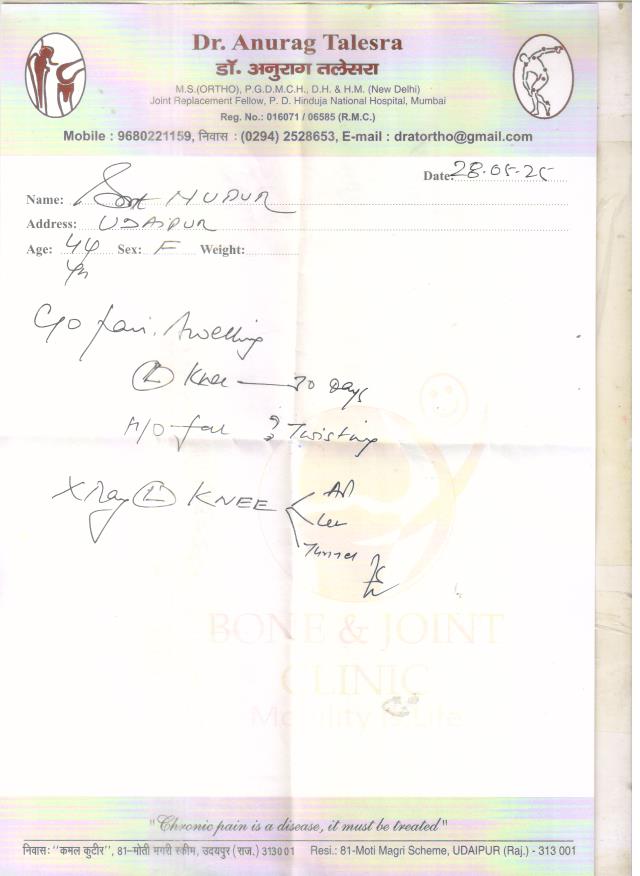 Dr. Anurag Talesra
डॉ. अनुराग तलेसरा
M.S.(ORTHO), P.G.D.M.C.H., D.H. & H.M. (New Delhi)
Joint Replacement Fellow, P. D. Hinduja National Hospital, Mumbai
Reg. No.: 016071 / 06585 (R.M.C.)
Mobile : 9680221159, निवास : (0294) 2528653, E-mail : dratortho@gmail.com
Date: 28.05.25
Name: NUPUR
Address: UDAIPUR
Age: 44 Sex: F Weight:
C/O pain. Swelling
(L) Knee
Days
H/O fall ? Twisting
X Ray (L) KNEE
AP
Lat
Tunnel
BONE & JOINT
CLINIC
Mobility is Life
"Chronic pain is a disease, it must be treated"
निवास: "कमल कुटीर", 81–मोती मगरी स्कीम, उदयपुर (राज.) 313001 Resi.: 81-Moti Magri Scheme, UDAIPUR (Raj.) - 313 001